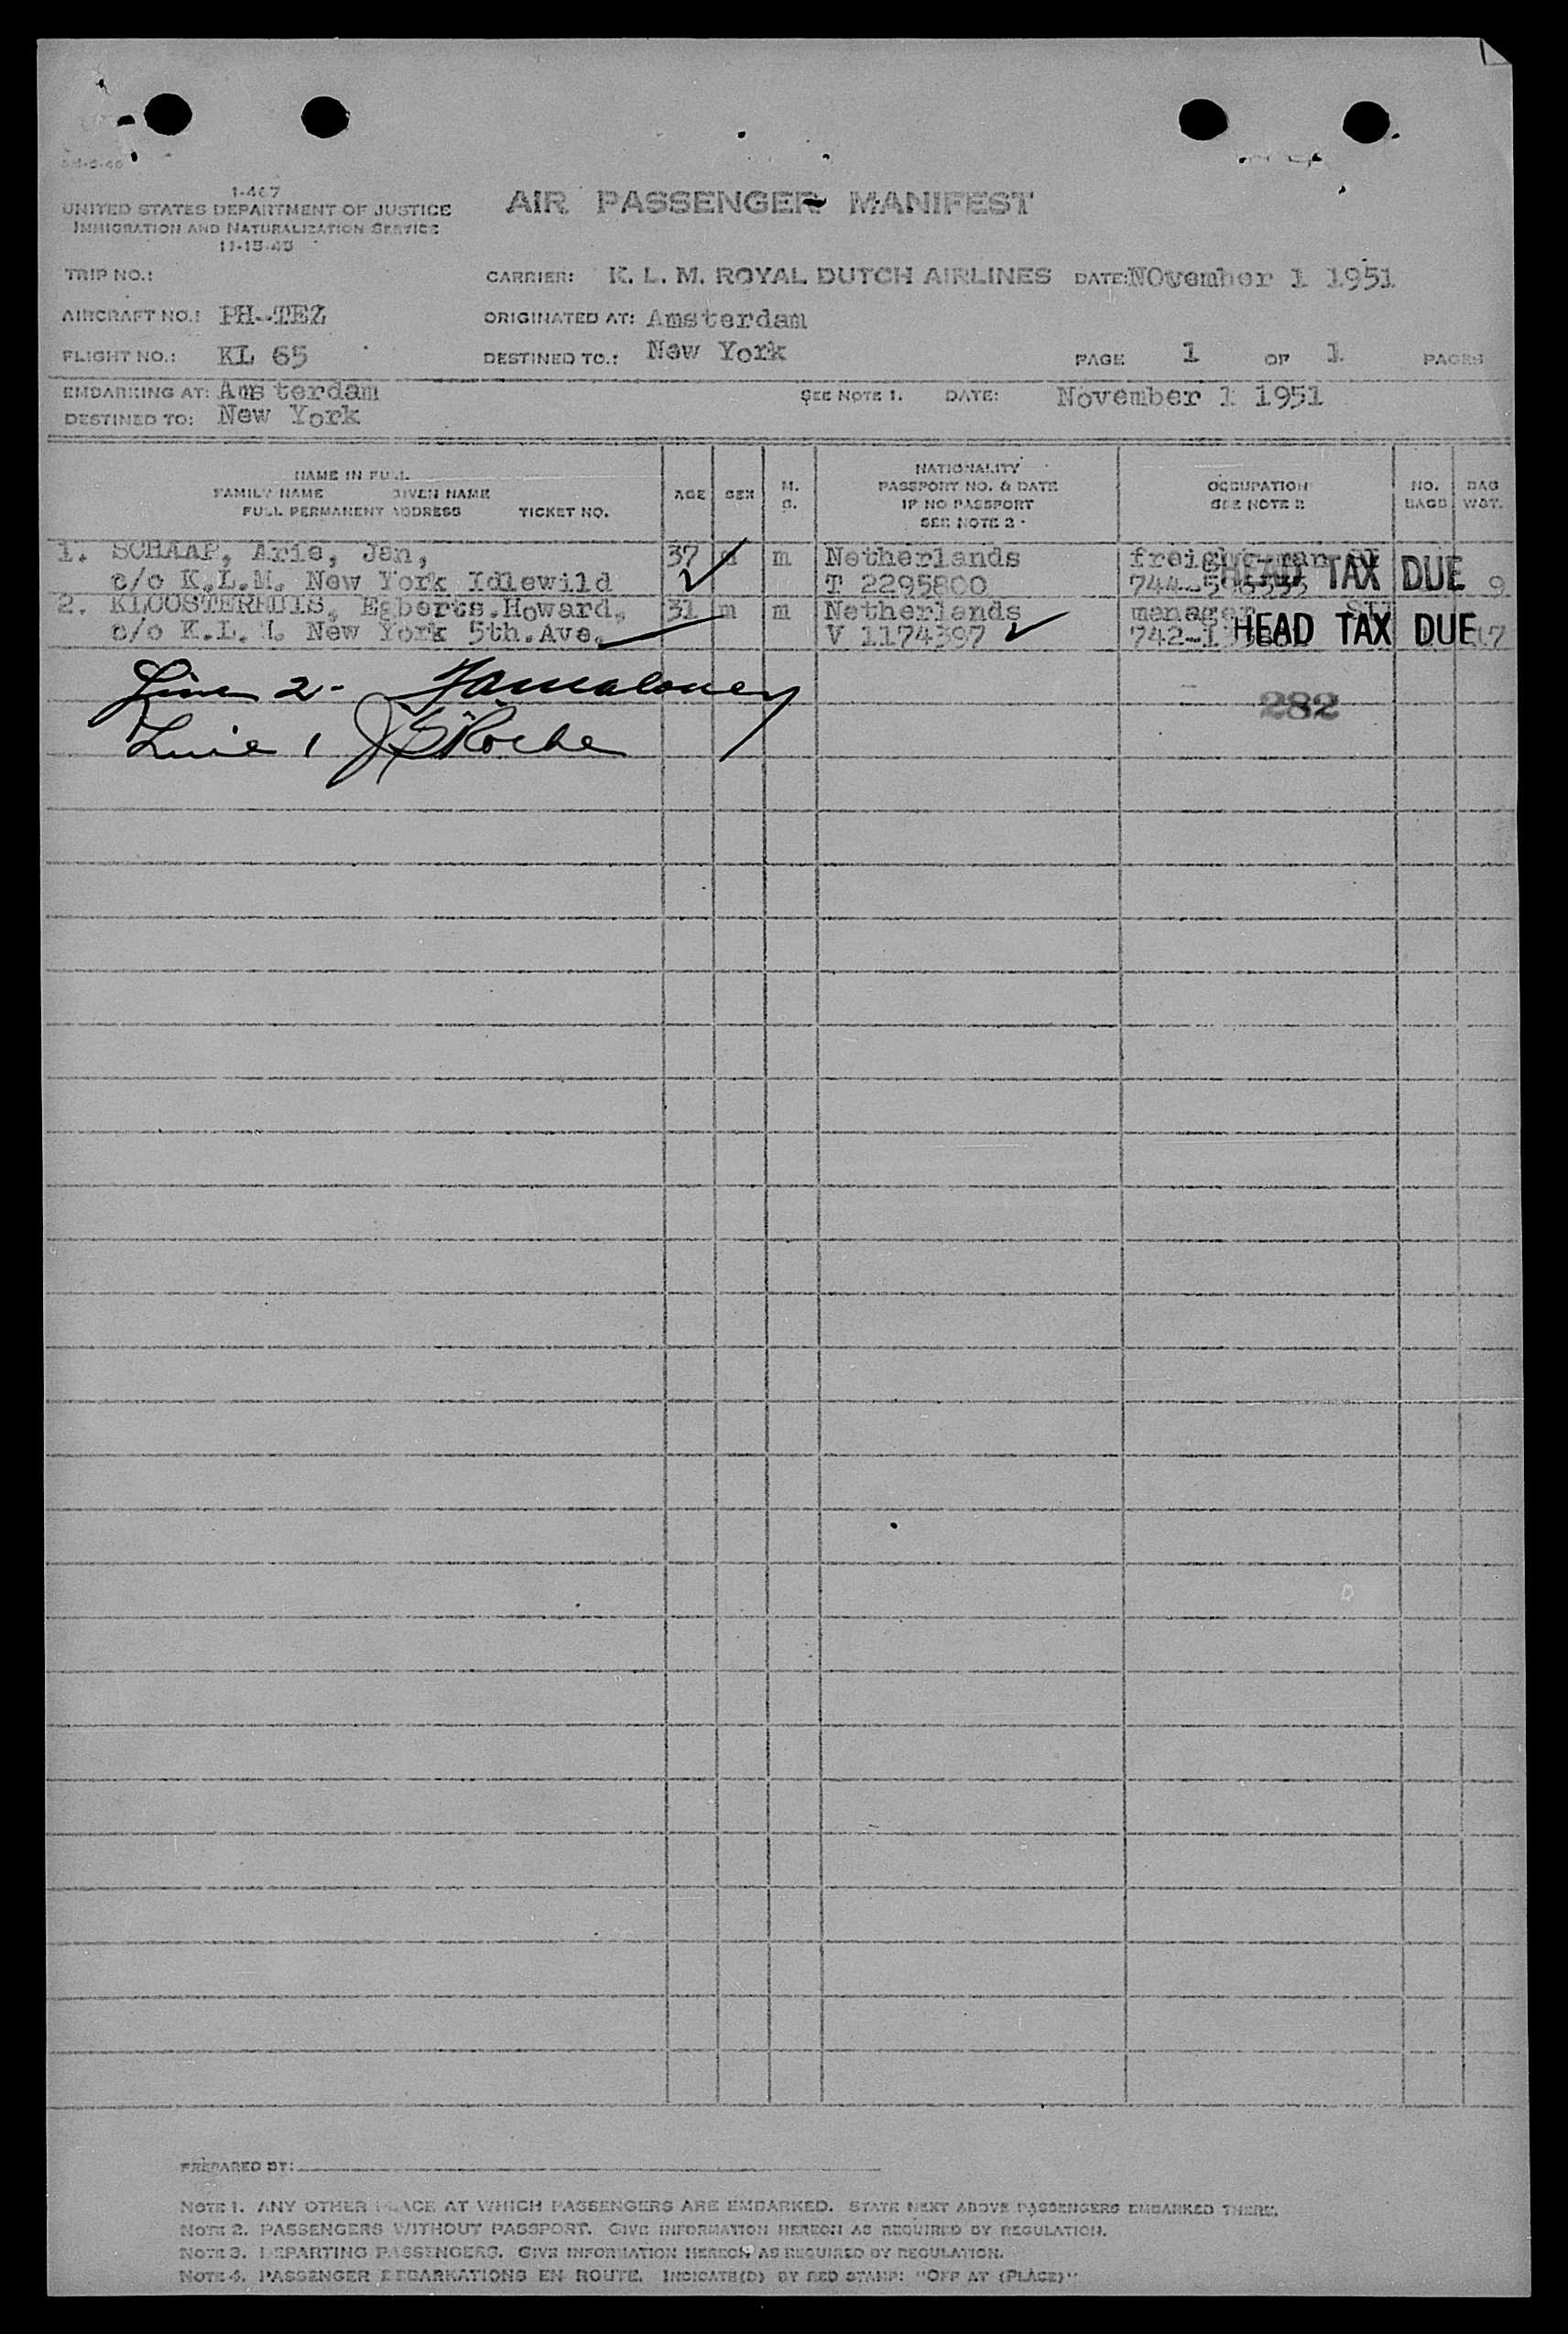 1-467
UNITED STATES DEPARTMENT OF JUSTICE
IMMIGRATION AND NATURALIZATION SERVICE
11-15-45
AIR PASSENGER MANIFEST
TRIP NO.:
CARRIER: K. L. M. ROYAL DUTCH AIRLINES DATE: NOvember 1 1951
AIRCRAFT NO.: PH-TEZ ORIGINATED AT: Amsterdam
FLIGHT NO.: KL 65 DESTINED TO.: New York PAGE 1 OF 1 PAGES
EMBARKING AT: Amsterdam SEE NOTE 1. DATE: November 1 1951
DESTINED TO: New York
NAME IN FULL
FAMILY NAME GIVEN NAME
FULL PERMANENT ADDRESS TICKET NO.
AGE SEX M. S.
NATIONALITY
PASSPORT NO. & DATE
IF NO PASSPORT
SEE NOTE 2
OCCUPATION
SEE NOTE 2
NO. BAGS
BAG WGT.
1. SCHAAP, Arie, Jan, 37 m m Netherlands freight man
c/o K.L.M. New York Idlewild T 2295800 HEAD TAX DUE 9
2. KLOOSTERHUIS, Egberts.Howard, 31 m m Netherlands manager
c/o K.L.M. New York 5th.Ave. V 1174397 HEAD TAX DUE 17
Line 2-
282
Line 1 Roche
PREPARED BY:
NOTE 1. ANY OTHER PLACE AT WHICH PASSENGERS ARE EMBARKED. STATE NEXT ABOVE PASSENGERS EMBARKED THERE.
NOTE 2. PASSENGERS WITHOUT PASSPORT. GIVE INFORMATION HEREON AS REQUIRED BY REGULATION.
NOTE 3. DEPARTING PASSENGERS. GIVE INFORMATION HEREON AS REQUIRED BY REGULATION.
NOTE 4. PASSENGER DEBARKATIONS EN ROUTE. INDICATE(D) BY RED STAMP: "OFF AT (PLACE)"